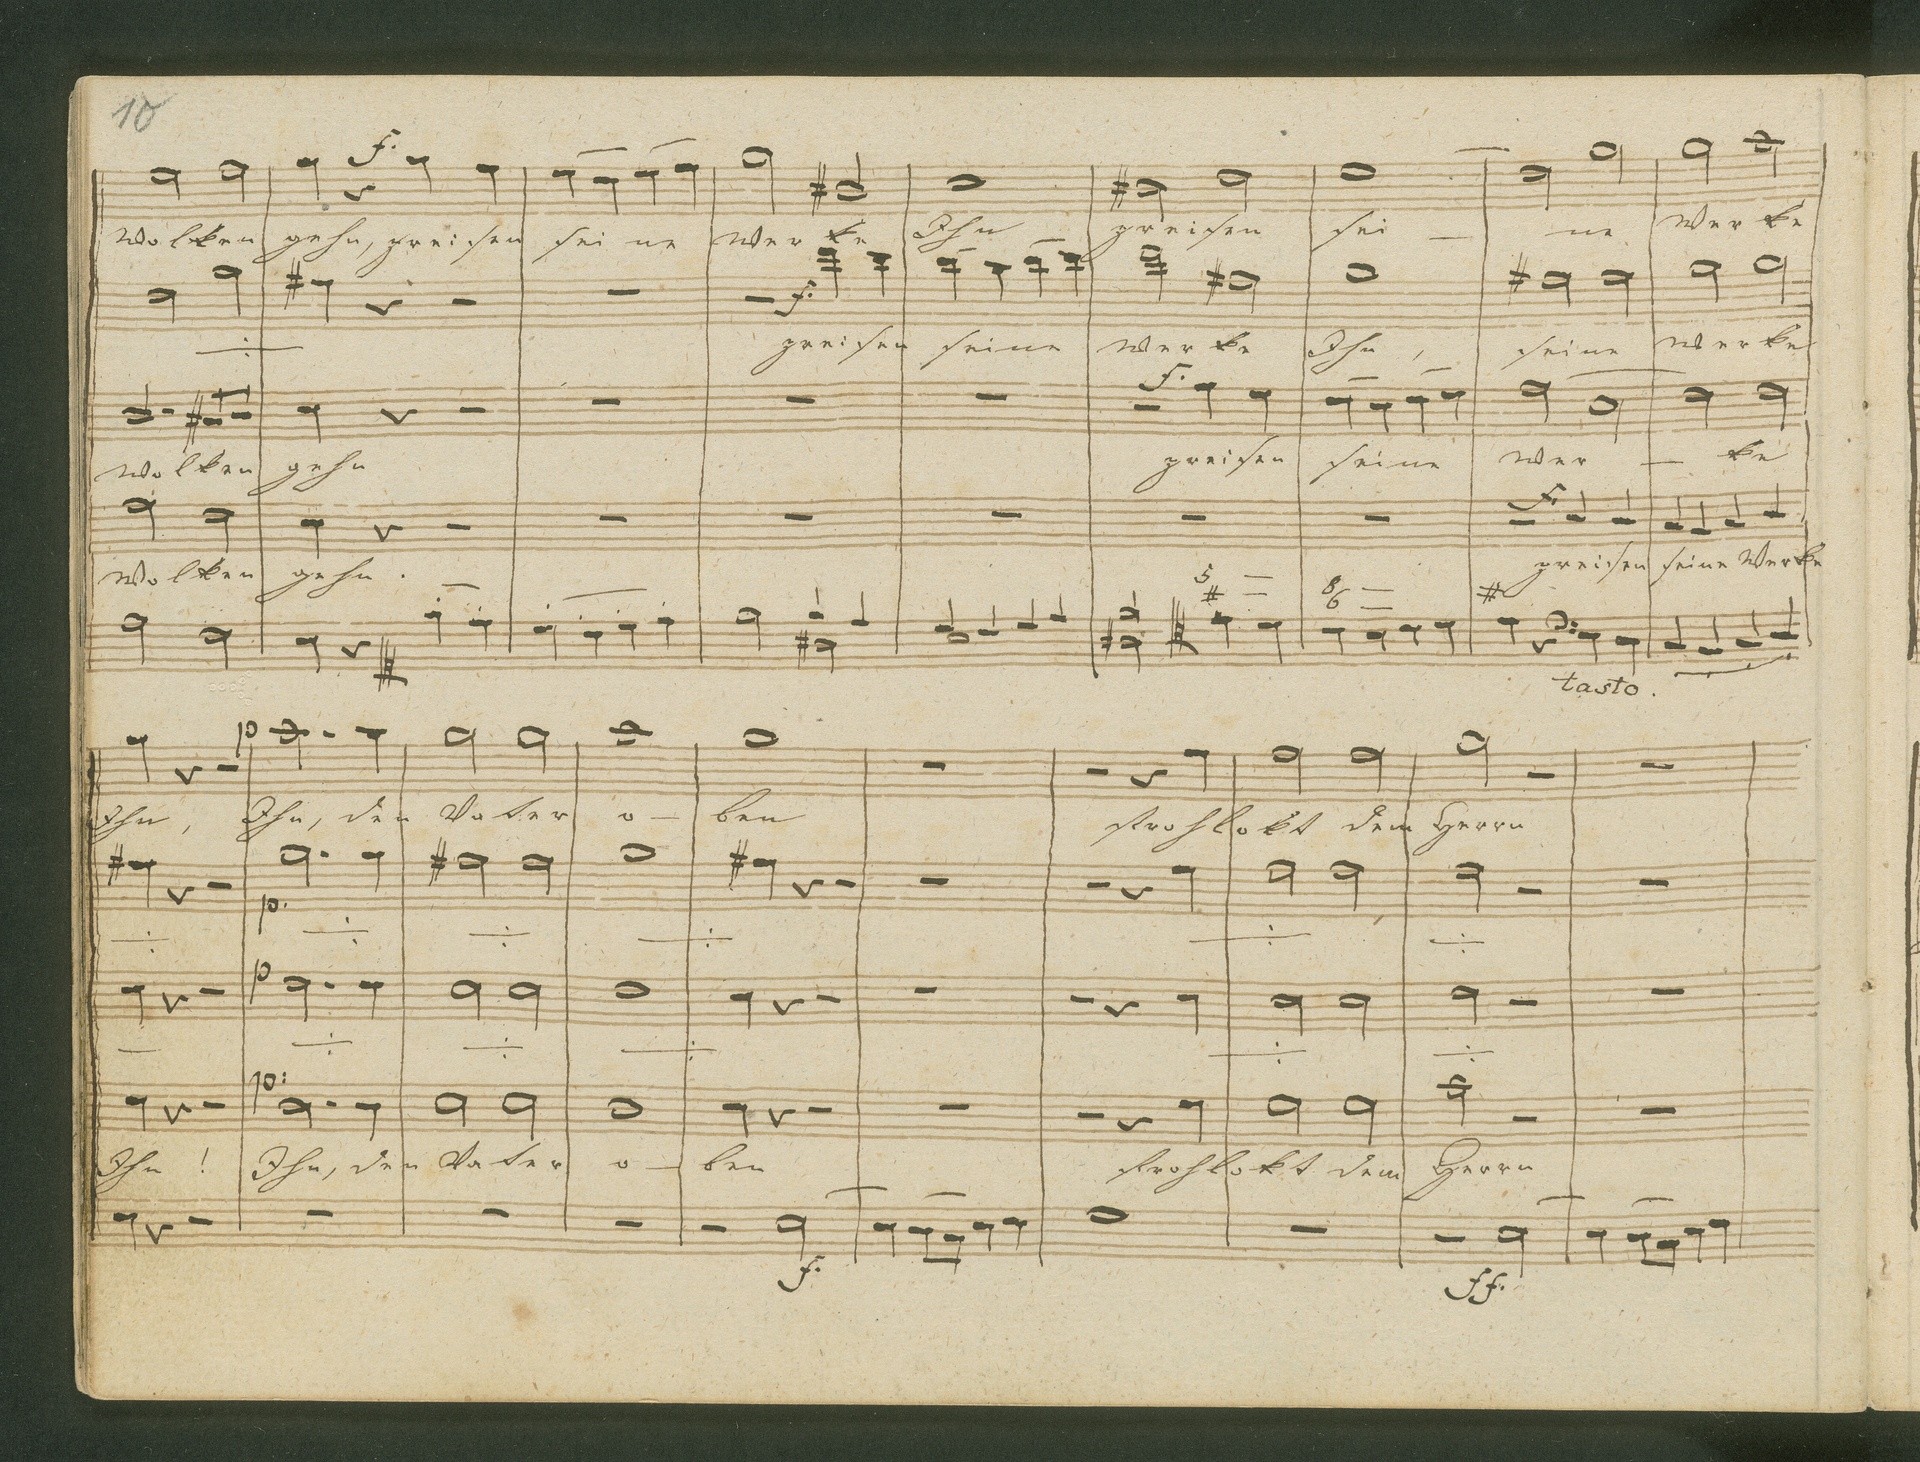 10
f.
Wolken gehn, preisen sei ne Wer ke Ihn preisen sei — ne Werke
f.
preisen seine Werke Ihn, seine Werke
f.
Wolken gehn preisen seine Wer — ke
f.
Wolken gehn. preisen seine Werke
5 8 6
tasto.
p
Ihn, Ihn, den Vater o — ben frohlokt dem Herrn
p.
p
p:
Ihn! Ihn, den Vater o — ben frohlokt dem Herrn
f. ff.